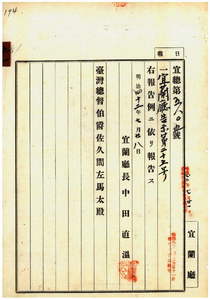 194
日報
宜總第五八〇號
一宜蘭廳告示第二十五號
右報告例ニ依リ報告ス
明治四十三年七月廿八日
宜蘭廳長中田直溫
臺灣總督伯爵佐久間左馬太殿
宜蘭廳